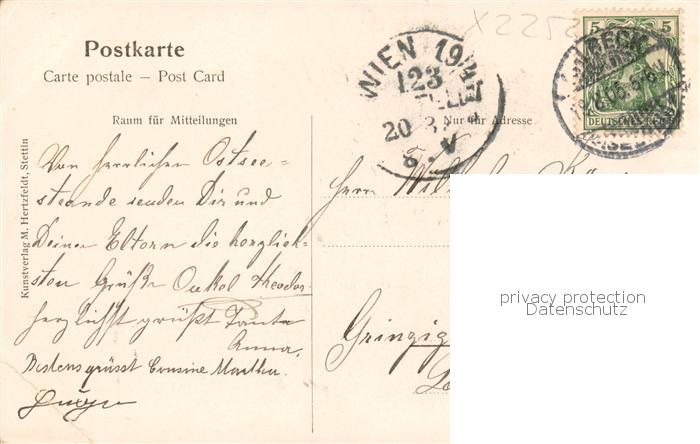 X2252
Postkarte
Carte postale – Post Card
Raum für Mitteilungen
Nur für Adresse
WIEN 19/1
123
20 8
8. V
5 5
DEUTSCHES REICH
Kunstverlag M. Hertzfeldt, Stettin
Von herrlichen Ostsee-
strande senden Dir und
Deinen Eltern die herzlich-
sten Grüße Onkel Theodor.
herzlichst grüßt Tante
Anna.
Bestens grüsst Cousine Martha.
Herrn
Grinzig
privacy protection
Datenschutz